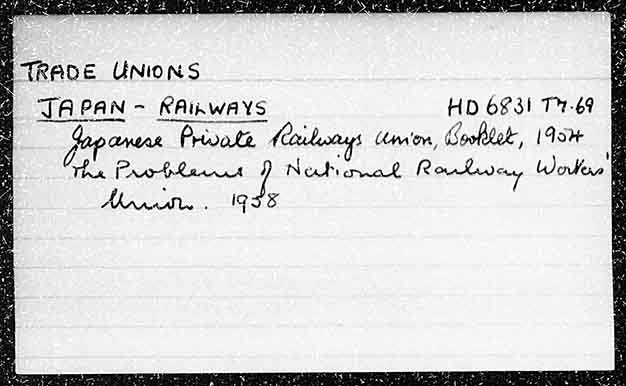 TRADE UNIONS
JAPAN - RAILWAYS HD6831 T7.69
Japanese Private Railways Union, Booklet, 1954
The Problems of National Railway Workers'
Union. 1958